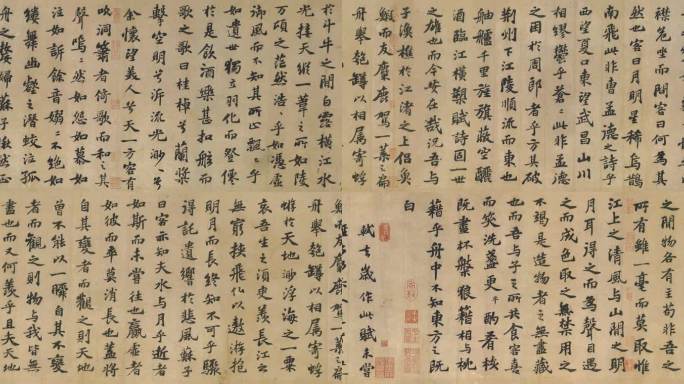 襟危坐而問客曰何為其
然也客曰月明星稀烏鵲
南飛此非曹孟德之詩乎
西望夏口東望武昌山川
相繆鬱乎蒼〻此非孟德
之困於周郎者乎方其破
荊州下江陵順流而東也
舳艫千里旌旗蔽空釃
酒臨江橫槊賦詩固一世
之雄也而今安在哉況吾與
子漁樵於江渚之上侶魚
鰕而友麋鹿駕一葉之扁
舟舉匏罇以相屬寄蜉
於斗牛之間白露橫江水
光接天縱一葦之所如陵
萬頃之茫然浩〻乎如馮虛
御風而不知其所止飄〻乎
如遺世獨立羽化而登僊
於是飲酒樂甚扣舷而
歌之歌曰桂棹兮蘭槳
擊空明兮泝流光渺〻兮
余懷望美人兮天一方客有
吹洞簫者倚歌而和之其
聲嗚〻然如怨如慕如
泣如訴餘音嫋〻不絕如
縷舞幽壑之潛蛟泣孤
舟之嫠婦蘇子愀然正
之間物各有主苟非吾之
所有雖一毫而莫取惟
江上之清風與山間之明
月耳得之而為聲目遇
之而成色取之無禁用之
不竭是造物者之無盡藏
也而吾與子之所共食客喜
而笑洗盞更酌肴核
既盡杯盤狼籍相與枕
藉乎舟中不知東方之既
白
軾去歲作此賦未嘗
友麋鹿駕一葉之扁
舟舉匏罇以相屬寄蜉
蝣於天地渺浮海之一粟
哀吾生之須臾羨長江之
無窮挾飛仙以遨遊抱
明月而長終知不可乎驟
得託遺響於悲風蘇子
曰客亦知夫水與月乎逝者
如斯而未嘗往也贏虛者
如彼而卒莫消長也蓋將
自其變者而觀之則天地
曾不能以一瞬自其不變
者而觀之則物與我皆無
盡也而又何羨乎且夫天地